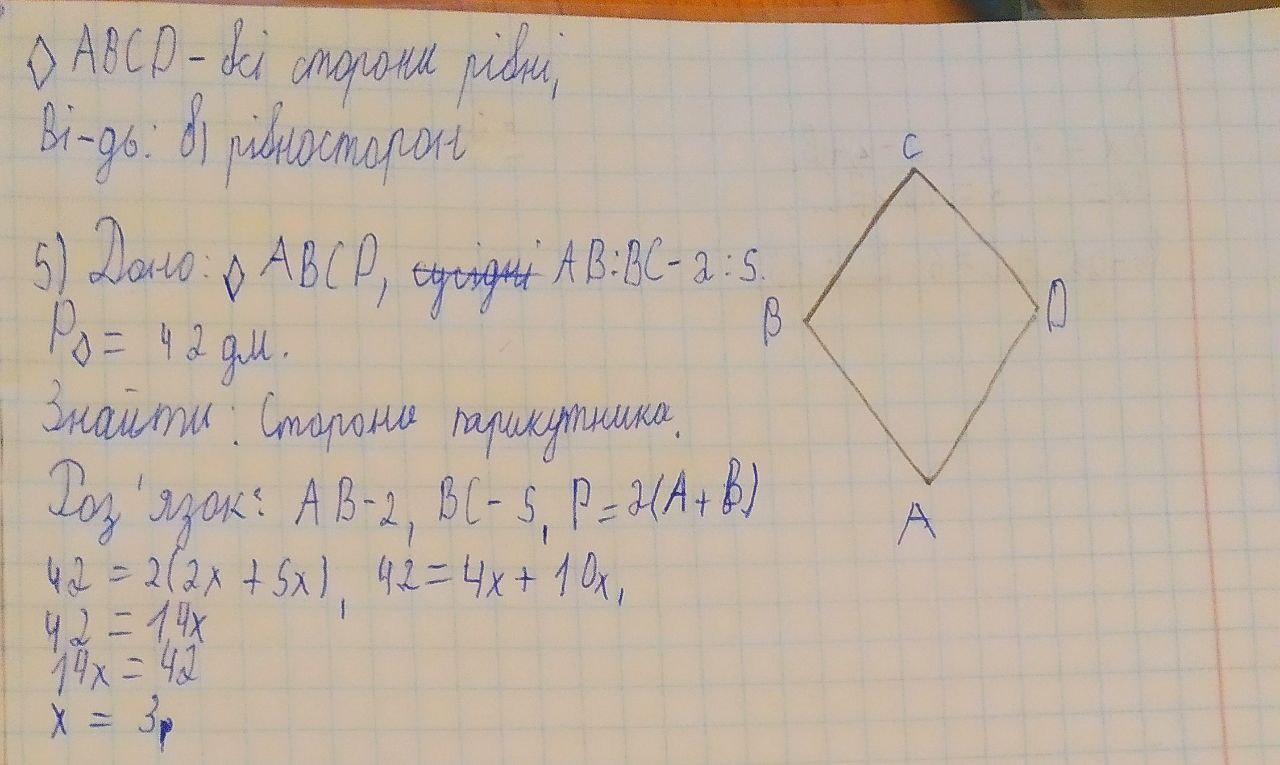 ◊ ABCD - всі сторони рівні,
Ві-дь: б) рівносторон
5) Дано: ◊ ABCD, сусідні AB:BC - 2:5.
P◊ = 42 дм.
Знайти: Сторони чотирикутника.
Роз'язок: AB - 2, BC - 5, P = 2(A + B)
42 = 2(2x + 5x), 42 = 4x + 10x,
42 = 14x
14x = 42
x = 3,
C
B
D
A